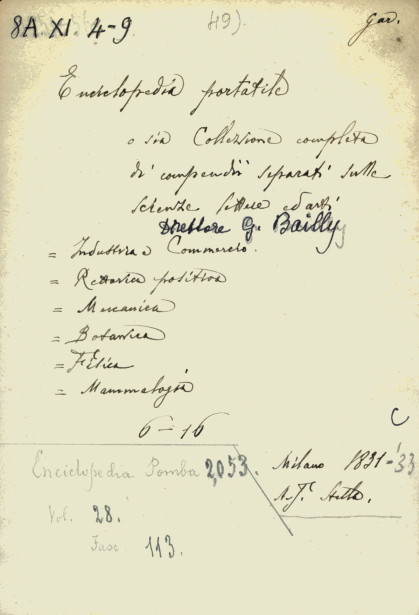 8A XI. 4-9
49).
Gar.
Enciclopedia portatile
o sia Collezione completa
di compendii separati sulle
scienze lettere ed arti
Direttore G. Bailly
= Industria e Commercio.
= Rettorica positiva
= Meccanica
= Botanica
= Fisica
= Mammalogia
6-16
C
Enciclopedia Pomba 2,053.
Milano 1831-33
Vol. 28.
Fasc 113.